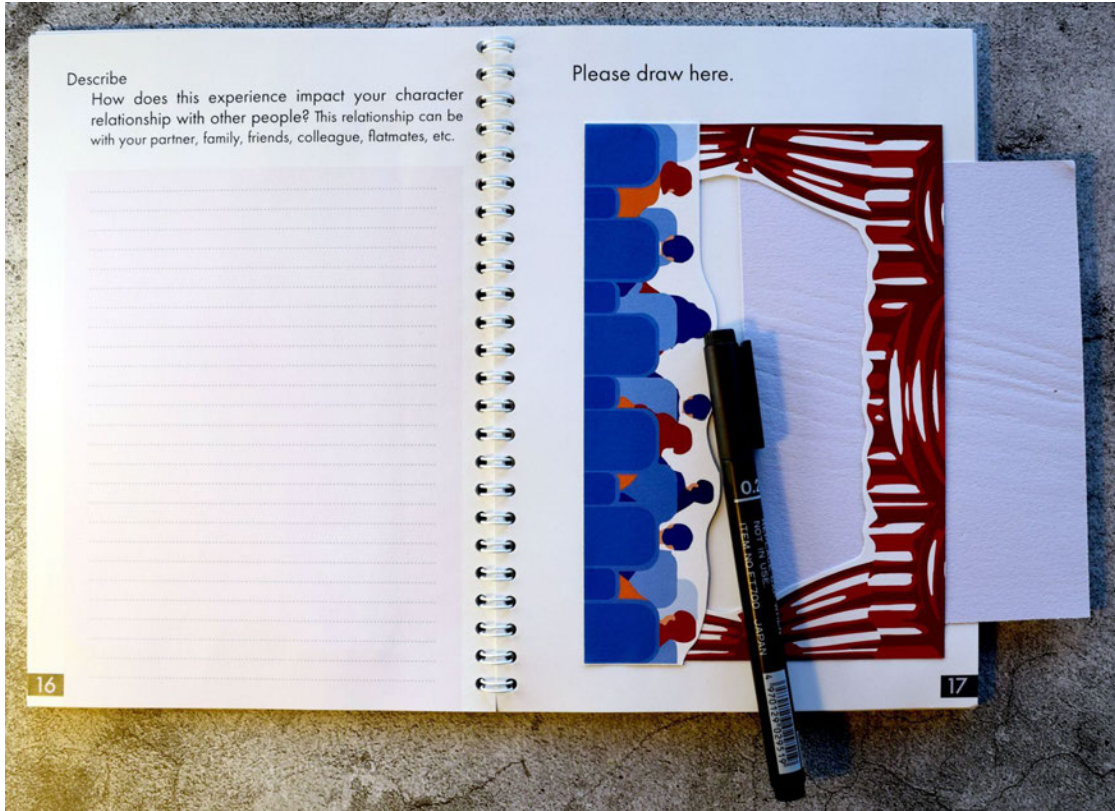 Describe
How does this experience impact your character
relationship with other people? This relationship can be
with your partner, family, friends, colleague, flatmates, etc.
16
Please draw here.
17
0.2
NOT IN USE
ITEM NO.EF700 JAPAN
4 970129 029519